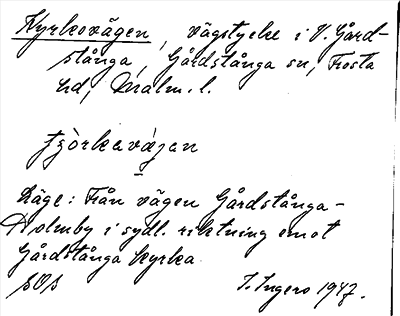 Kyrkovägen, vägstycke i V. Gård-
stånga, Gårdstånga sn, Frosta
hd, Malm. l.
tjòrkavä́jan
Läge: Från vägen Gårdstånga -
Holmby i sydl. riktning emot
Gårdstånga kyrka.
SOS I. Ingers 1947.